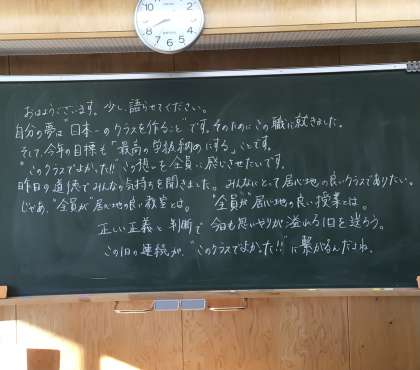 おはようございます。少し語らせてください。
自分の夢は"日本一のクラスを作ること"です。そのためにこの職に就きました。
そして、今年の目標も"最高の学級納めにする"ことです。
"このクラスでよかった!!"この想いを全員に感じさせたいです。
昨日の道徳でみんなの気持ちを聞きました。みんなにとって居心地の良いクラスでありたい。
じゃあ、"全員が"居心地の良い教室とは。 "全員が"居心地の良い授業とは。
正しい正義と判断で 今日も思いやりが溢れる1日を送ろう。
この1日の連続が、"このクラスでよかった!!"に繋がるんだよね。